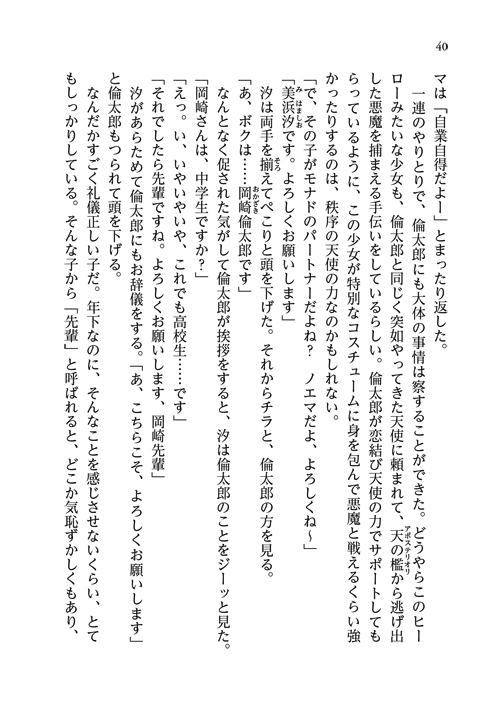 40
マは「自業自得だよー」とまったり返した。
　一連のやりとりで、倫太郎にも大体の事情は察することができた。どうやらこのヒー
ローみたいな少女も、倫太郎と同じく突如やってきた天使に頼まれて、天の檻から逃げ出
アポステリオリ
した悪魔を捕まえる手伝いをしているらしい。倫太郎が恋結び天使の力でサポートしても
らっているように、この少女が特別なコスチュームに身を包んで悪魔と戦えるくらい強
かったりするのは、秩序の天使の力なのかもしれない。
「で、その子がモナドのパートナーだよね？　ノエマだよ、よろしくね～」
「美浜汐です。よろしくお願いします」
み はましお
　汐は両手を揃えてぺこりと頭を下げた。それからチラと、倫太郎の方を見る。
そろ
「あ、ボクは……岡崎倫太郎です」
おかざき
　なんとなく促された気がして倫太郎が挨拶をすると、汐は倫太郎のことをジーッと見た。
「岡崎さんは、中学生ですか？」
「えっ。い、いやいやいや、これでも高校生……です」
「それでしたら先輩ですね。よろしくお願いします、岡崎先輩」
　汐があらためて倫太郎にもお辞儀をする。「あ、こちらこそ、よろしくお願いします」
と倫太郎もつられて頭を下げる。
　なんだかすごく礼儀正しい子だ。年下なのに、そんなことを感じさせないくらい、とて
もしっかりしている。そんな子から「先輩」と呼ばれると、どこか気恥ずかしくもあり、